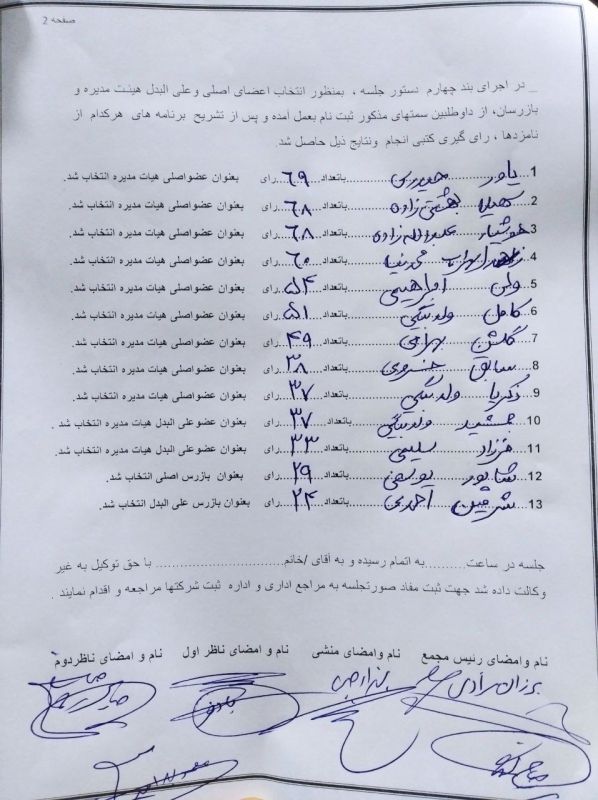 صفحه 2
_ در اجرای بند چهارم دستور جلسه ، بمنظور انتخاب اعضای اصلی وعلی البدل هیئت مدیره و
بازرسان، از داوطلبین سمتهای مذکور ثبت نام بعمل آمده و پس از تشریح برنامه های هرکدام از
نامزدها ، رای گیری کتبی انجام ونتایج ذیل حاصل شد.
1- یاور حیدری باتعداد ۶۹ رای بعنوان عضواصلی هیات مدیره انتخاب شد.
2- سهیلا بهشتی زاده باتعداد ۶۸ رای بعنوان عضواصلی هیات مدیره انتخاب شد.
3- هوشیار عبدالله زاده باتعداد ۶۸ رای بعنوان عضواصلی هیات مدیره انتخاب شد.
4- باتعداد ۶۰ رای بعنوان عضواصلی هیات مدیره انتخاب شد.
5- ابراهیمی باتعداد ۵۴ رای بعنوان عضواصلی هیات مدیره انتخاب شد.
6- کامل ولدبیگی باتعداد ۵۱ رای بعنوان عضواصلی هیات مدیره انتخاب شد.
7- گلشن بهرامی باتعداد ۴۹ رای بعنوان عضواصلی هیات مدیره انتخاب شد.
8- سابق خسروی باتعداد ۳۸ رای بعنوان عضواصلی هیات مدیره انتخاب شد.
9- زکریا ولدبیگی باتعداد ۳۷ رای بعنوان عضواصلی هیات مدیره انتخاب شد.
10- جمشید ولدبیگی باتعداد ۳۷ رای بعنوان عضوعلی البدل هیات مدیره انتخاب شد .
11- فرزاد سلیمی باتعداد ۳۳ رای بعنوان عضوعلی البدل هیات مدیره انتخاب شد.
12- شاپور یوسفی باتعداد ۲۹ رای بعنوان بازرس اصلی انتخاب شد.
13- احمدی باتعداد ۲۴ رای بعنوان بازرس علی البدل انتخاب شد.
جلسه در ساعت..........به اتمام رسیده و به آقای /خانم.............................با حق توکیل به غیر
وکالت داده شد جهت ثبت مفاد صورتجلسه به مراجع اداری و اداره ثبت شرکتها مراجعه و اقدام نمایند .
نام وامضای رئیس مجمع نام وامضای منشی نام و امضای ناظر اول نام و امضای ناظردوم
برزان مرادی